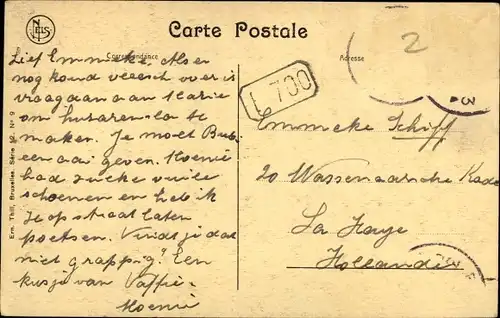 NELS
Carte Postale
Correspondance
Adresse
2
L 700
Lief Emmeke, Als er
nog koud vleesch over is
vraag aan Marie
om huzaren-sla te
maken. Je moet Bub
een aai geven. Moenie
had zulke vuile
schoenen en heb ik
ze op straat laten
poetsen. Vindt je dat
niet grappig? Een
kusje van Vaffie
Moenie
Emmeke Schiff
20 Wassenaarsche Kade
La Haye
Hollande
Ern. Thill, Bruxelles. Série 12, No 9